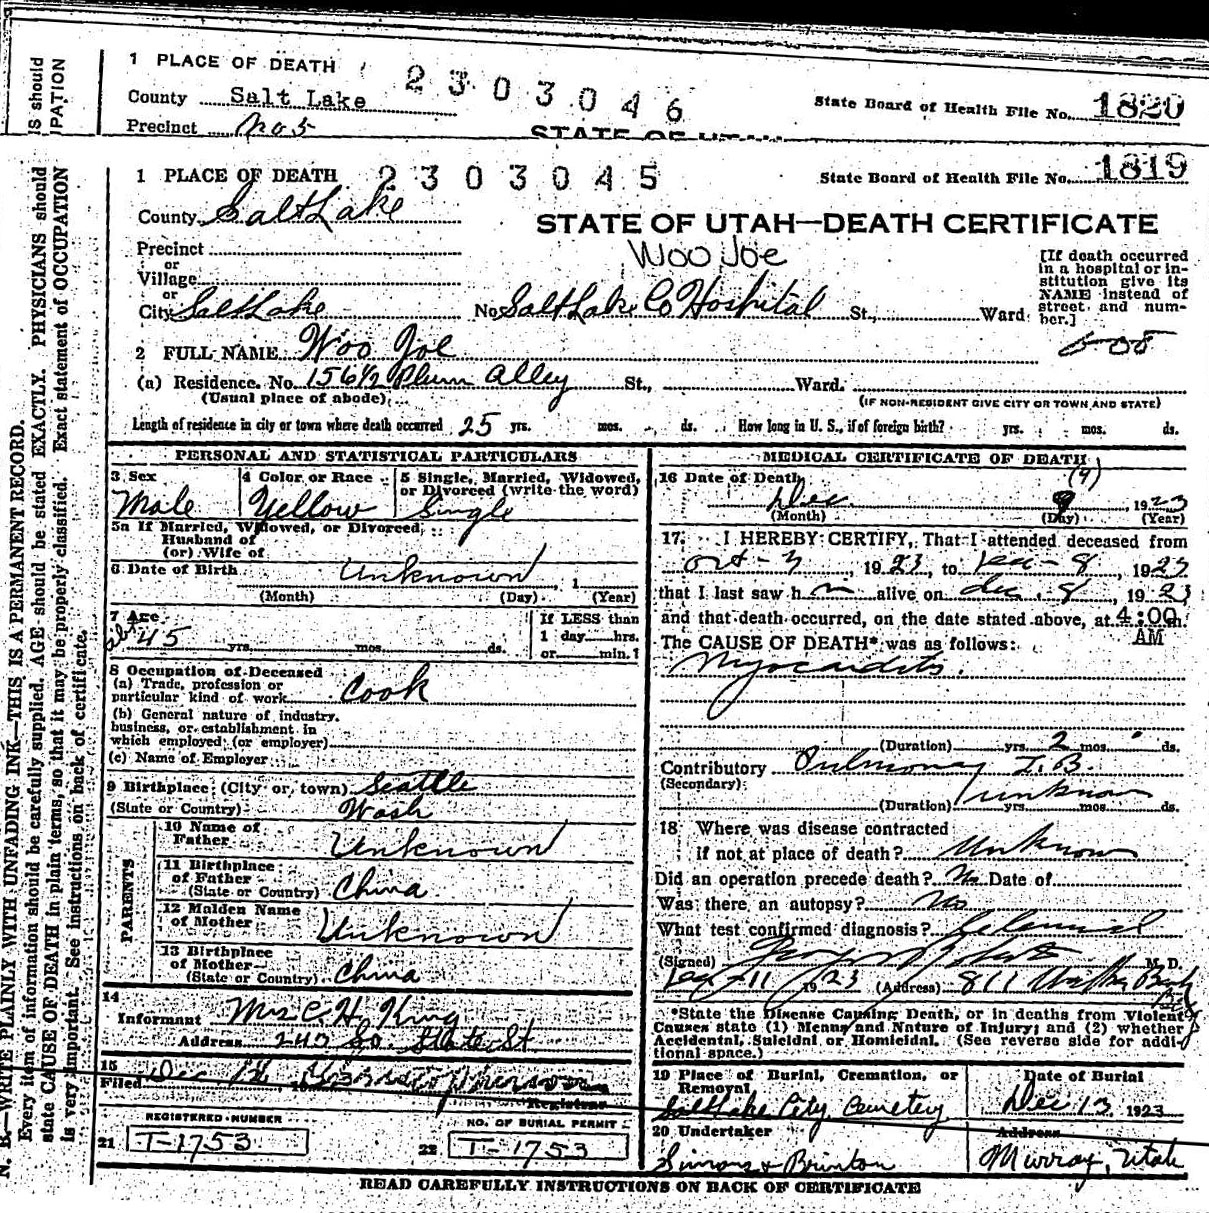 1 PLACE OF DEATH 2303046
County Salt Lake State Board of Health File No. 1820
Precinct No 5 STATE OF UTAH
IS should
PATION
1 PLACE OF DEATH 2303045 State Board of Health File No. 1819
County Salt Lake STATE OF UTAH—DEATH CERTIFICATE
Precinct Woo Joe
or
Village
or
City Salt Lake No. Salt Lake Co Hospital St., Ward
[If death occurred
in a hospital or in-
stitution give its
NAME instead of
street and num-
ber.]
2 FULL NAME Woo Joe
(a) Residence. No. 156½ Plum Alley St., Ward.
(Usual place of abode) (IF NON-RESIDENT GIVE CITY OR TOWN AND STATE)
Length of residence in city or town where death occurred 25 yrs. mos. ds. How long in U. S., if of foreign birth? yrs. mos. ds.
PERSONAL AND STATISTICAL PARTICULARS
3 Sex
Male
4 Color or Race
Yellow
5 Single, Married, Widowed,
or Divorced (write the word)
Single
5a If Married, Widowed, or Divorced,
Husband of
(or) Wife of
6 Date of Birth Unknown, 1
(Month) (Day) (Year)
7 Age
abt 45 yrs. mos. ds.
If LESS than
1 day hrs.
or min.
8 Occupation of Deceased
(a) Trade, profession or
particular kind of work Cook
(b) General nature of industry,
business, or establishment in
which employed (or employer)
(c) Name of Employer
9 Birthplace (City or town) Seattle
(State or Country) Wash
PARENTS
10 Name of
Father Unknown
11 Birthplace
of Father
(State or Country) China
12 Maiden Name
of Mother Unknown
13 Birthplace
of Mother
(State or Country) China
14
Informant Mrs C. H. King
Address 245 So. State St
15
Filed Dec
Registrar
REGISTERED NUMBER
21 T-1753
NO. OF BURIAL PERMIT
22 T-1753
MEDICAL CERTIFICATE OF DEATH
16 Date of Death (9)
Dec 9, 1923
(Month) (Day) (Year)
17. I HEREBY CERTIFY, That I attended deceased from
Oct-3, 1923, to Dec-8, 1923
that I last saw h m alive on Dec. 8, 1923
and that death occurred, on the date stated above, at 4:00 m.
AM
The CAUSE OF DEATH* was as follows:
Myocarditis.
(Duration) yrs. 2 mos. ds.
Contributory Pulmonary T.B.
(Secondary)
(Duration) unknown yrs. mos. ds.
18 Where was disease contracted
if not at place of death? Unknown
Did an operation precede death? No Date of
Was there an autopsy? No
What test confirmed diagnosis?
(Signed) M. D.
Dec-11, 1923 (Address) 811 Walker Bank
*State the Disease Causing Death, or in deaths from Violent
Causes state (1) Means and Nature of Injury; and (2) whether
Accidental, Suicidal or Homicidal. (See reverse side for addi-
tional space.)
19 Place of Burial, Cremation, or
Removal
Salt Lake City Cemetery
Date of Burial
Dec 13 1923
20 Undertaker
Simons & Brinton
Address
Murray, Utah
READ CAREFULLY INSTRUCTIONS ON BACK OF CERTIFICATE
N. B.—WRITE PLAINLY WITH UNFADING INK—THIS IS A PERMANENT RECORD.
Every item of information should be carefully supplied. AGE should be stated EXACTLY. PHYSICIANS should
state CAUSE OF DEATH in plain terms, so that it may be properly classified. Exact statement of OCCUPATION
is very important. See instructions on back of certificate.